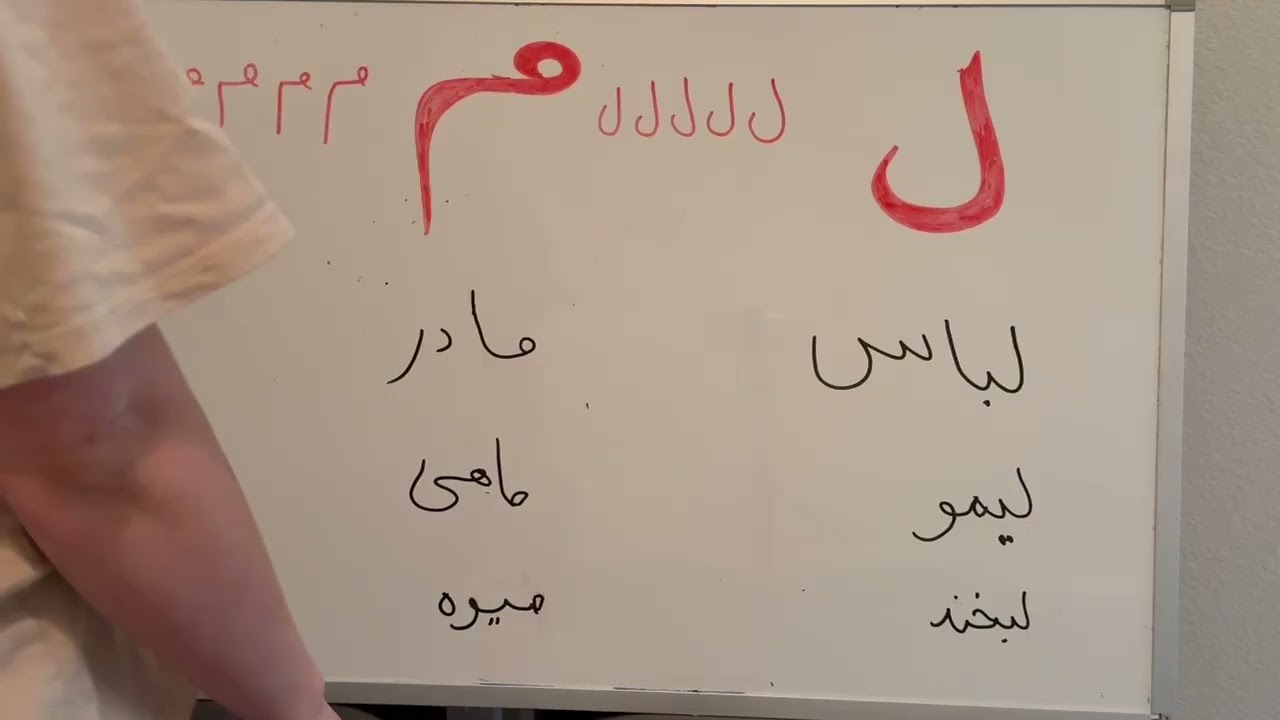 ل ل ل ل ل ل م م م م م
لباس مادر
لیمو ماهی
لبخند میوه